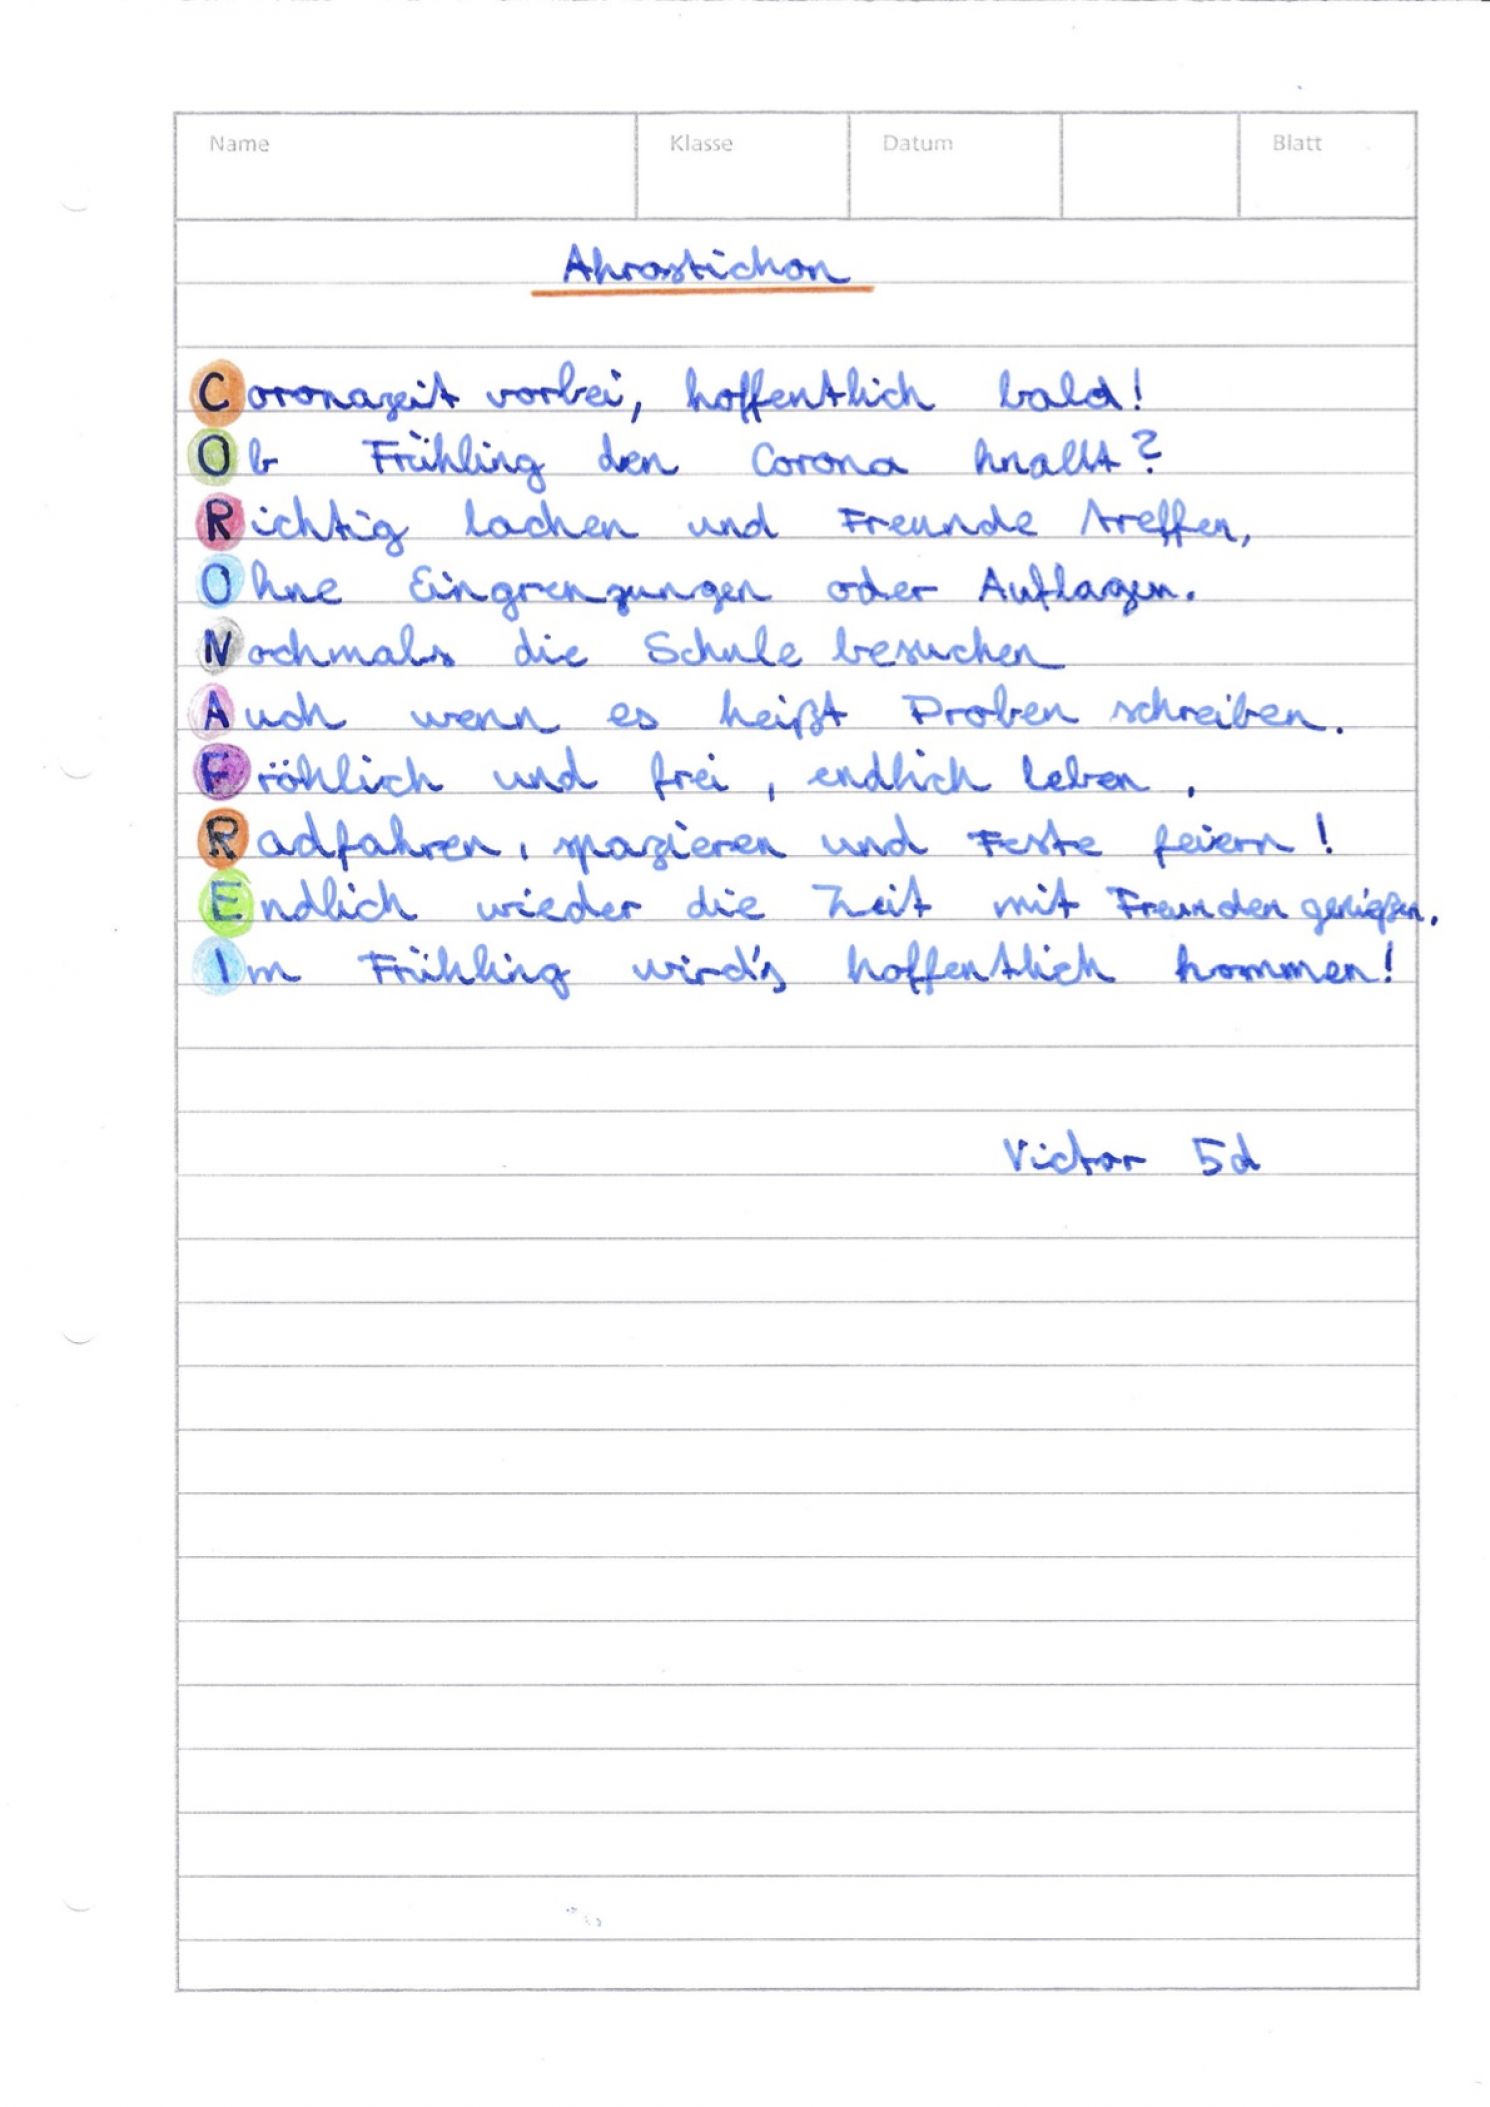 Name Klasse Datum Blatt
Akrostichon
Coronazeit vorbei, hoffentlich bald!
Ob Frühling den Corona knallt?
Richtig lachen und Freunde treffen,
Ohne Eingrenzungen oder Auflagen.
Nochmals die Schule besuchen
Auch wenn es heißt Proben schreiben.
Fröhlich und frei, endlich leben.
Radfahren, spazieren und Feste feiern!
Endlich wieder die Zeit mit Freunden genießen.
Im Frühling wird's hoffentlich kommen!
Victor 5d